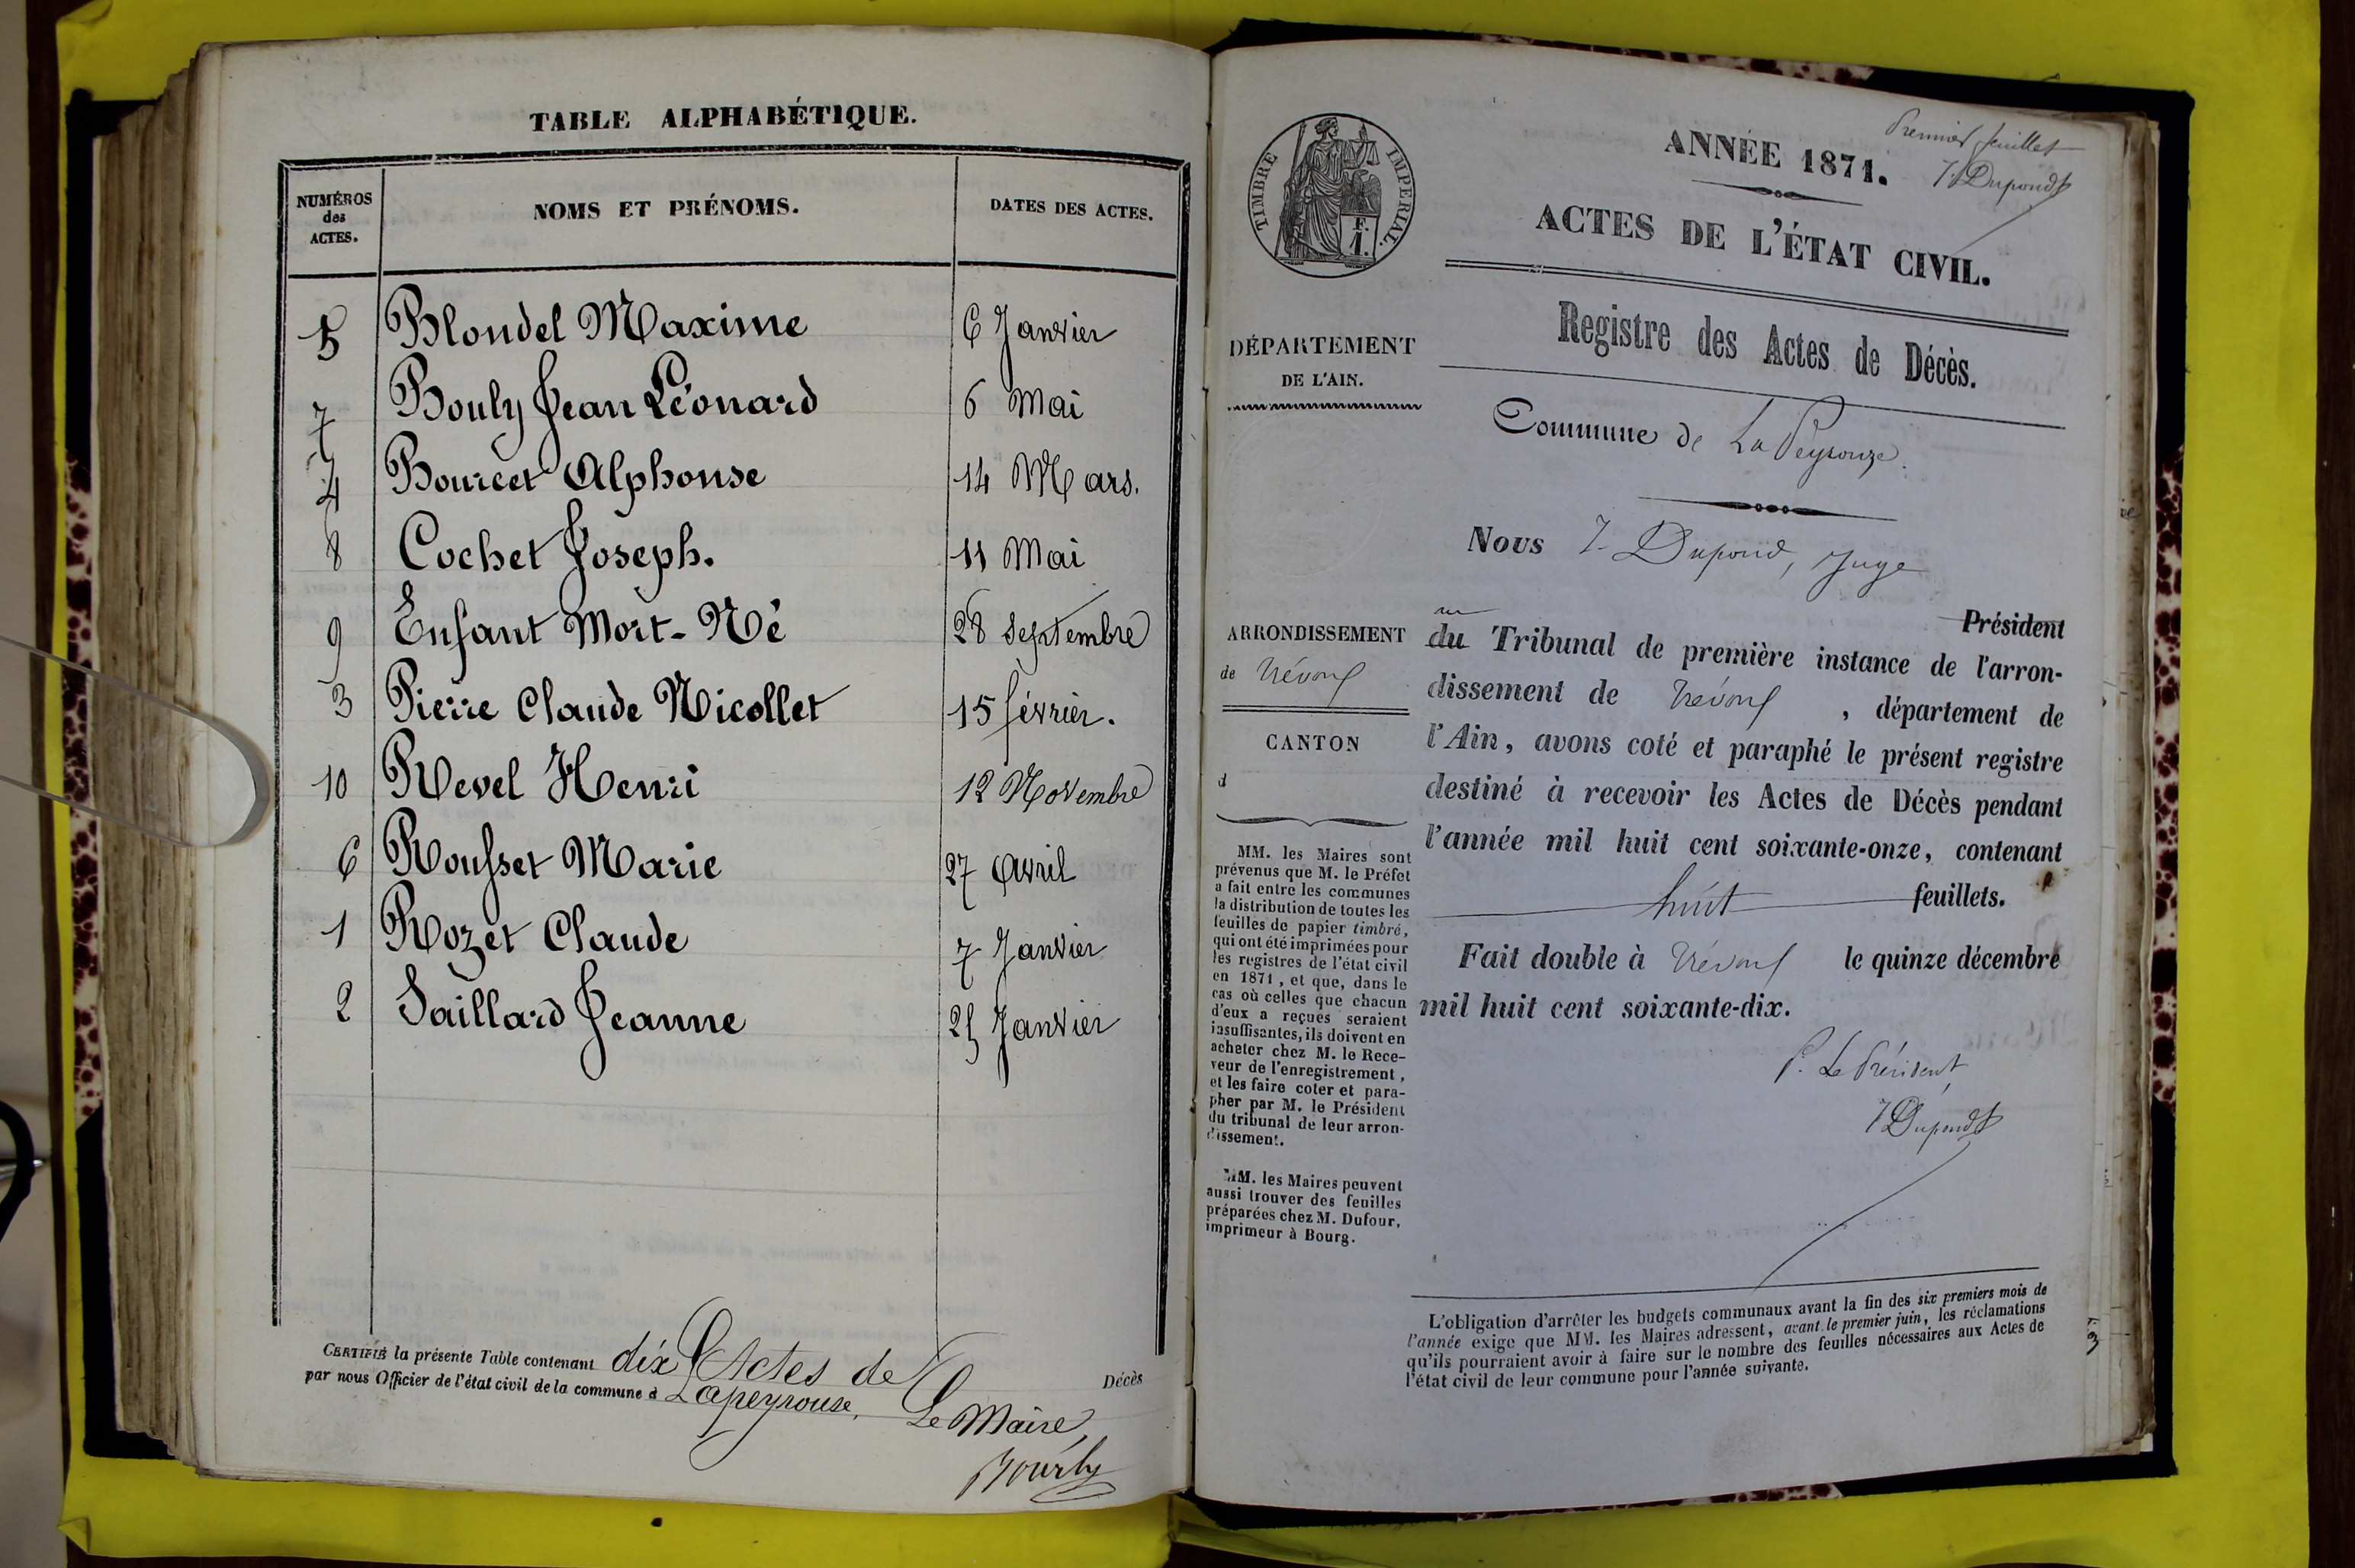 TABLE ALPHABÉTIQUE.
NUMÉROS des ACTES.
NOMS ET PRÉNOMS.
DATES DES ACTES.
5 Blondel Maxime 6 Janvier
7 Bouly Jean Léonard 6 Mai
4 Bourcet Alphonse 14 Mars.
8 Cochet Joseph. 11 Mai
9 Enfant Mort-Né 28 Septembre
3 Pierre Claude Nicollet 15 février.
10 Revel Henri 12 Novembre
6 Rousset Marie 27 Avril
1 Rozet Claude 7 Janvier
2 Saillard Jeanne 25 Janvier
CERTIFIÉ la présente Table contenant dix Actes de Décès
par nous Officier de l'état civil de la commune d Lapeyrouse.
Le Maire
TIMBRE IMPERIAL.
F.
1.
Premier feuillet
Dupond
ANNÉE 1871.
ACTES DE L'ÉTAT CIVIL.
Registre des Actes de Décès.
DÉPARTEMENT
DE L'AIN.
Commune de La Peyrouze.
Nous J. Dupond, Juge
Président
au
du Tribunal de première instance de l'arron-
dissement de Trévoux, département de
l'Ain, avons coté et paraphé le présent registre
destiné à recevoir les Actes de Décès pendant
l'année mil huit cent soixante-onze, contenant
huit feuillets.
Fait double à Trévoux le quinze décembre
mil huit cent soixante-dix.
P. Le Président
Dupond
ARRONDISSEMENT
de Trévoux
CANTON
d
MM. les Maires sont
prévenus que M. le Préfet
a fait entre les communes
la distribution de toutes les
feuilles de papier timbré,
qui ont été imprimées pour
les registres de l'état civil
en 1871, et que, dans le
cas où celles que chacun
d'eux a reçues seraient
insuffisantes, ils doivent en
acheter chez M. le Rece-
veur de l'enregistrement,
et les faire coter et para-
pher par M. le Président
du tribunal de leur arron-
dissement.
MM. les Maires peuvent
aussi trouver des feuilles
préparées chez M. Dufour,
imprimeur à Bourg.
L'obligation d'arrêter les budgets communaux avant la fin des six premiers mois de
l'année exige que MM. les Maires adressent, avant le premier juin, les réclamations
qu'ils pourraient avoir à faire sur le nombre des feuilles nécessaires aux Actes de
l'état civil de leur commune pour l'année suivante.